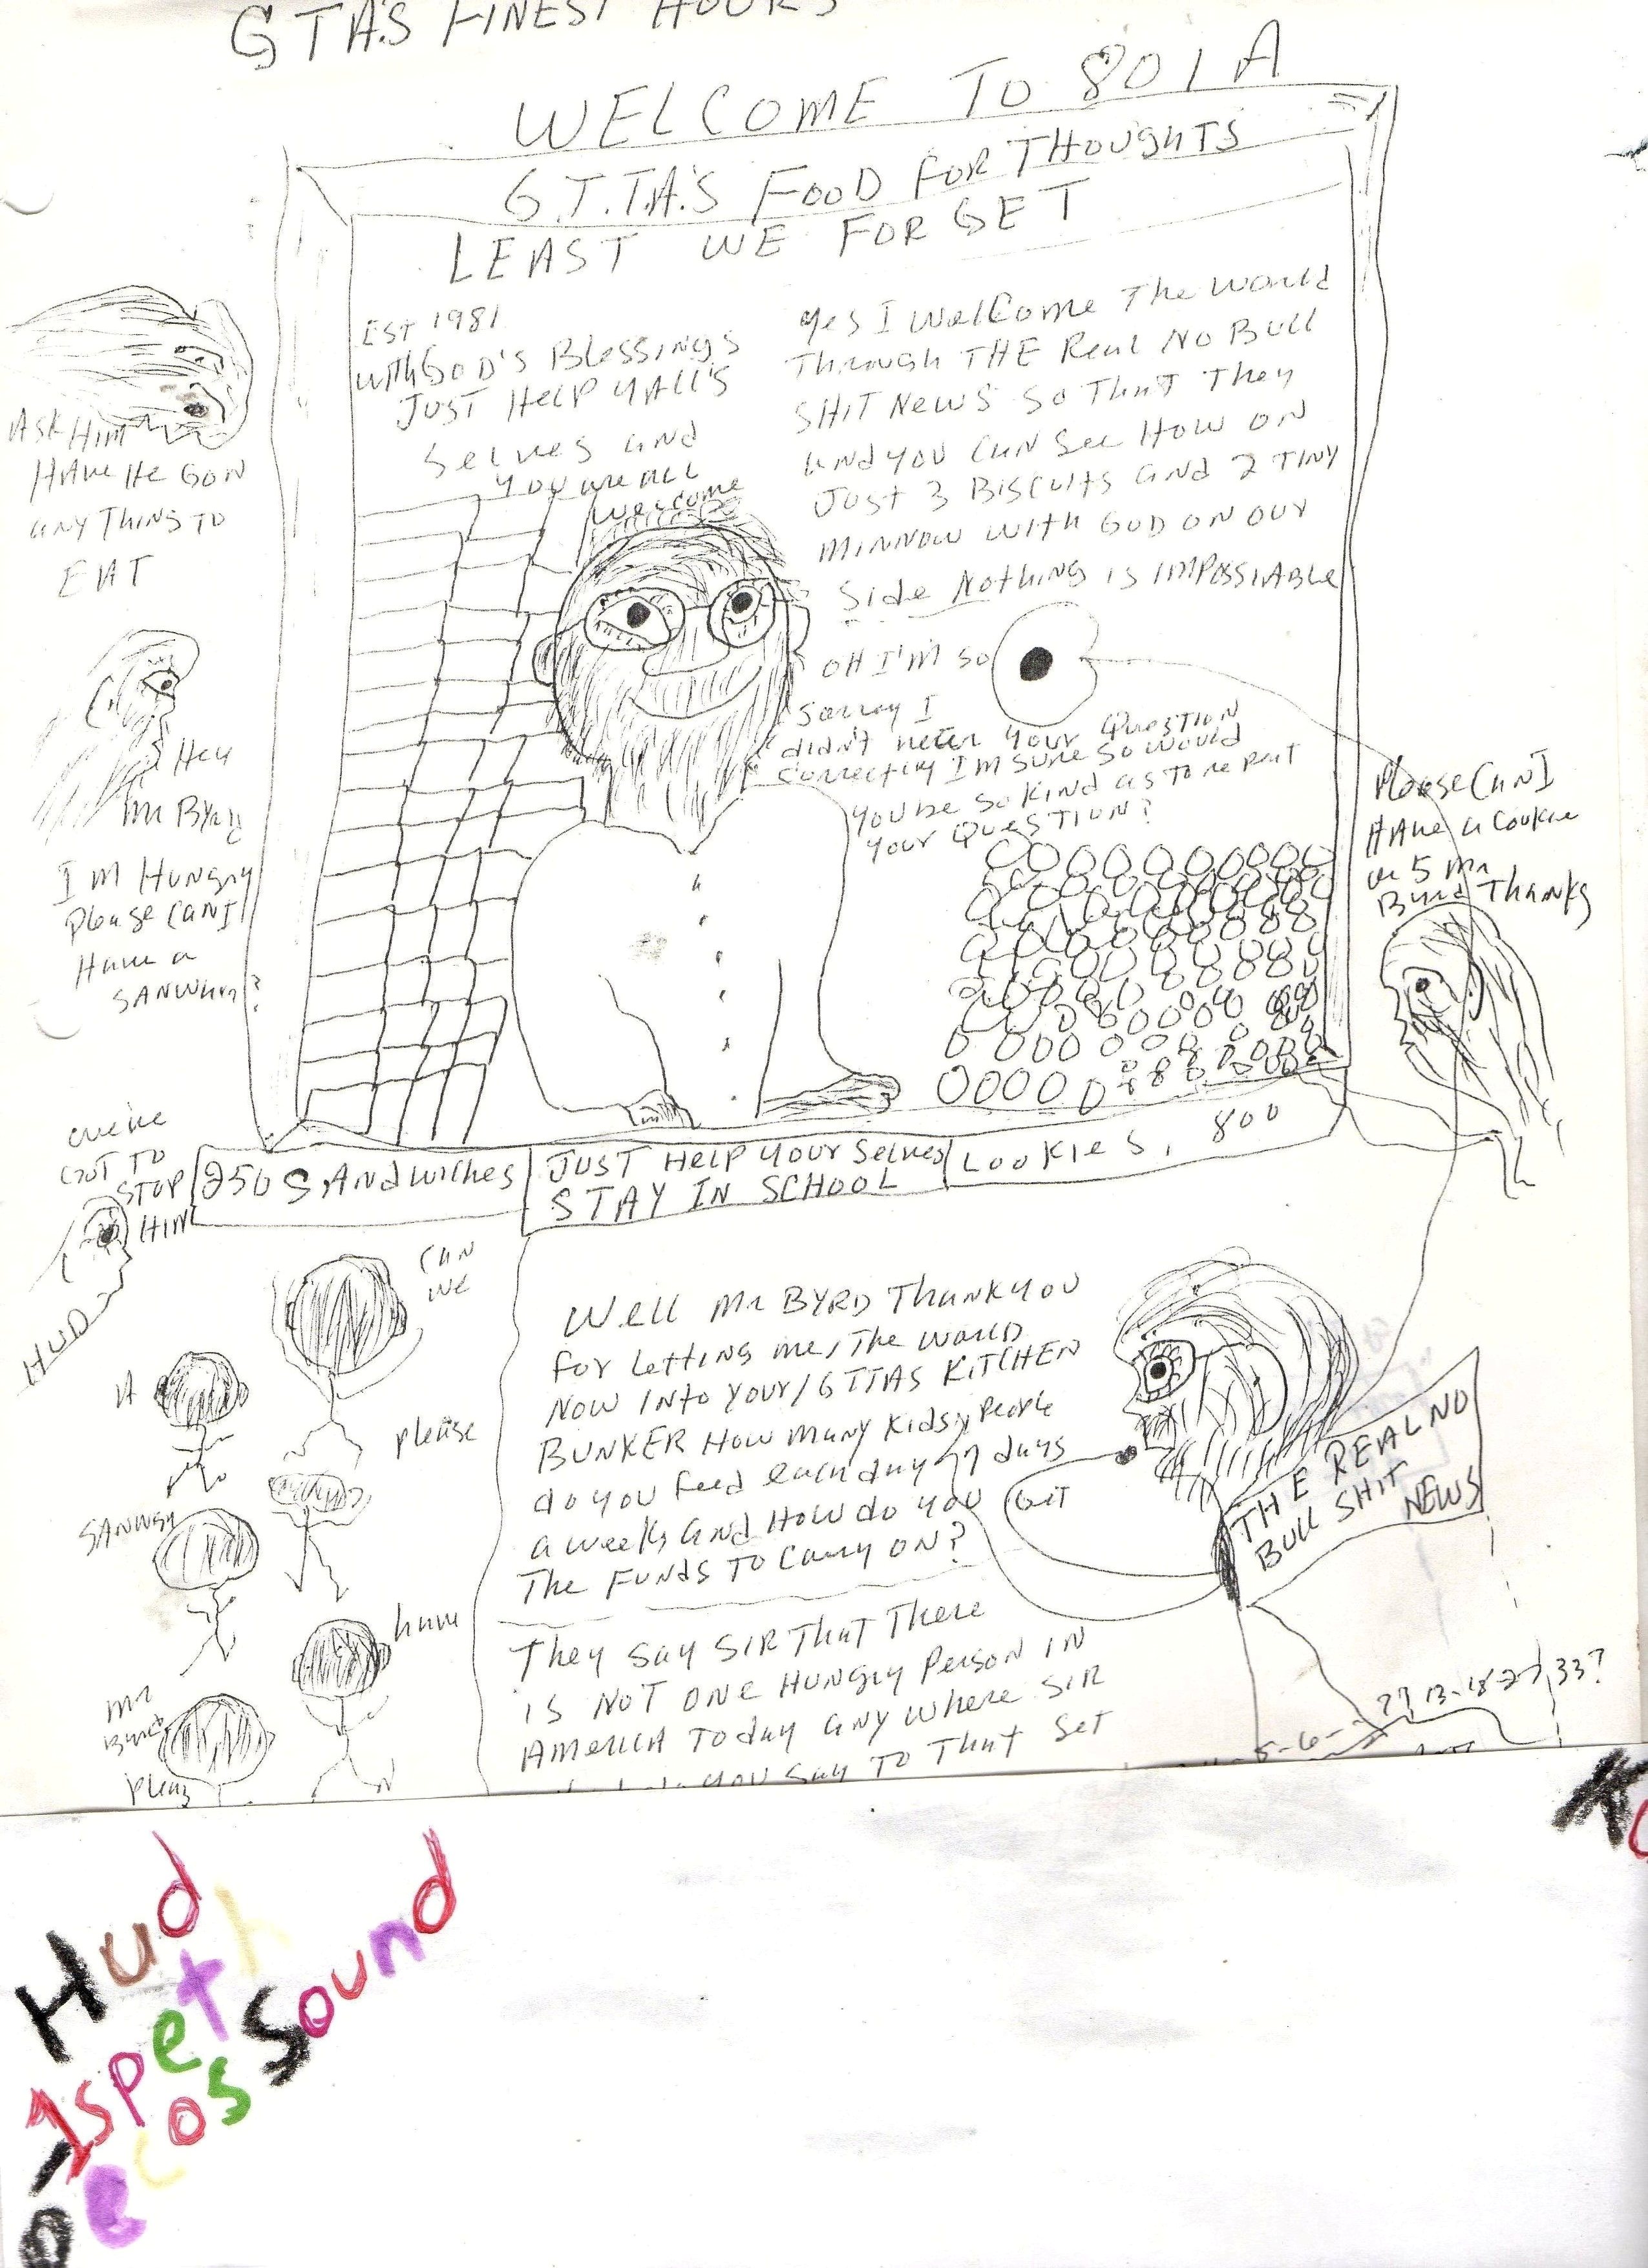 GTA'S FINEST HOURS
WELCOME TO 801A
G.T.T.A.'S FOOD FOR THOUGHTS
LEAST WE FORGET
EST 1981
with GOD'S BLESSINGS
JUST HELP YALL'S
SELVES and
YOU are ALL
welcome
yes I WelCome The World
Through THE Real NO BULL
SHIT NEWS SO That They
and you can See How on
Just 3 BISCUITS and 2 TINY
MINNOW WITH GOD ON OUR
Side Nothing is IMPOSSIABLE
OH I'M SO
Sorray I
didn't heter your QUESTION
Correctley I'm sure so would
you be so kind as to repeat
your QUESTION?
ASK HIM
HAVE HE GON
ANYTHING TO
EAT
Hey
Mr Byrd
I'M HUNGRY
Please CAN I
Have a
SANWHG?
Please CAN I
HAve a Cookie
or 5 Mr
Byrd Thanks
we've
GOT TO
STOP
HIM
HUD
250 SANdwiches
JUST HELP YOUR Selves
STAY IN SCHOOL
COOKIES, 800
CAN
WE
please
A
SANWGH
have
Mr
Byrd
pleaz
Well Mr BYRD Thank you
for letting me, The World
NOW INTO your/GTTAS KITCHEN
BUNKER How many Kids, People
do you feed each day 7 days
a week, and How do you GET
The FUNdS TO Carry ON?
They Say SIR That There
is NOT ONE HUNGRY Person in
AMERICA Today any where SIR
you say TO That Set
THE REAL NO
BULL SHIT
NEWS
5-6-
?? 13-18-27, 33?
Hud
Speth
Sound